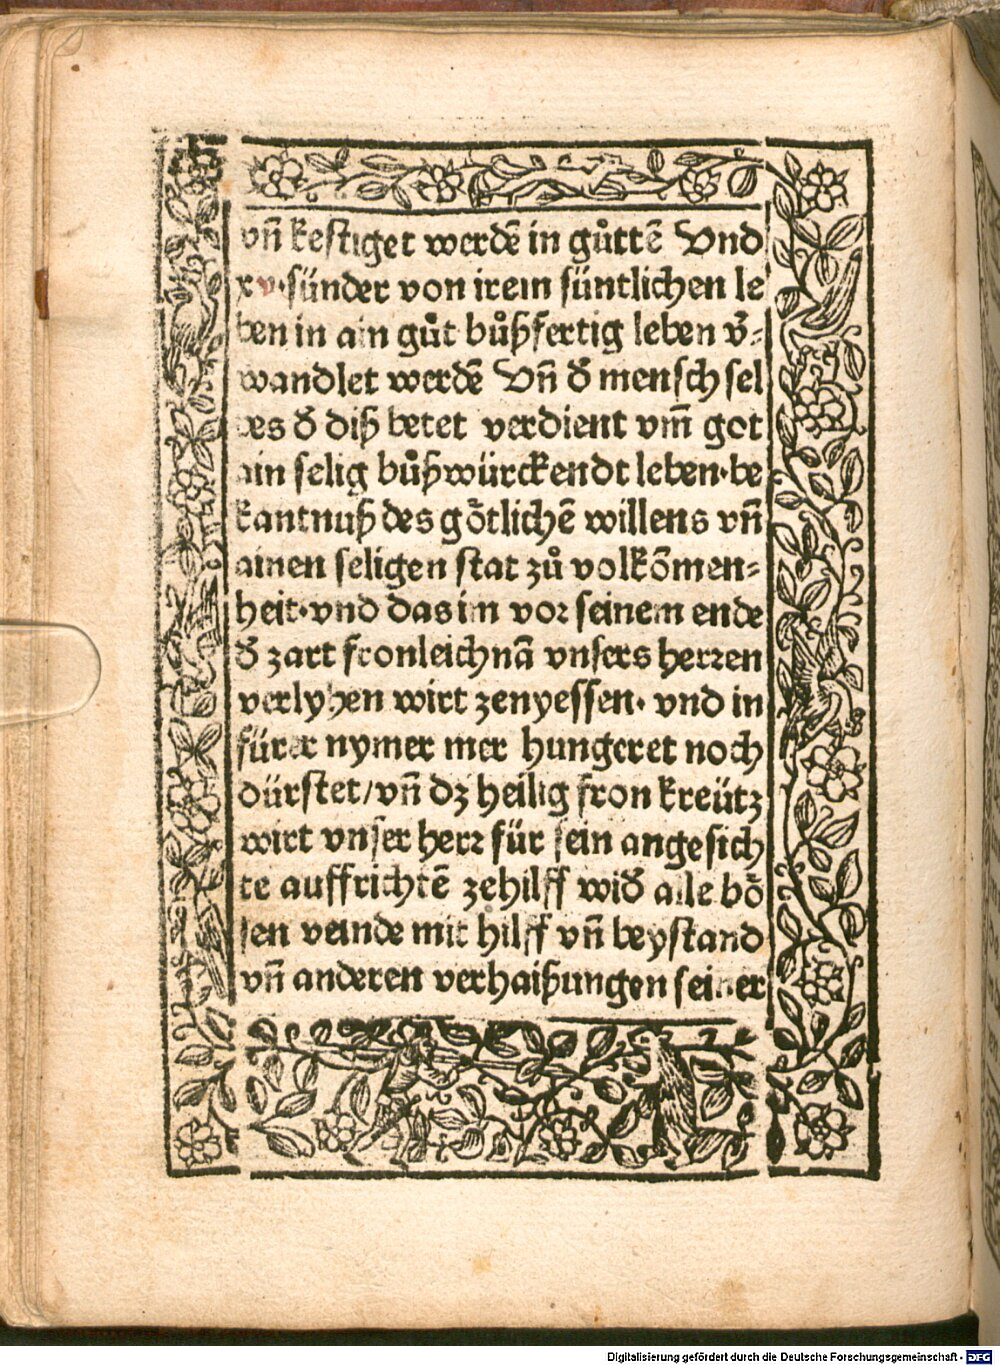 vñ kestiget werdē in gůttē Vnd
xv·sünder von irem süntlichen le
ben in ain gůt bůßfertig leben v̄⸗
wandlet werdē Vñ d̄ mensch sel
bes d̄ diß betet verdient vm̄ got
ain selig bůßwürckendt leben·be
kantnuß des götlichē willens vñ
ainen seligen stat zů volkōmen⸗
heit·vnd das im vor seinem ende
d̄ zart fronleichnā vnsers herren
verlyhen wirt zenyessen· vnd in
fürer nymer mer hungeret noch
dürstet/vñ dz heilig fron kreütz
wirt vnser herr für sein angesich
te auffrichtē zehilff wid̄ alle bö
sen veinde mit hilff vñ beystand
vñ anderen verhaißungen seiner
Digitalisierung gefördert durch die Deutsche Forschungsgemeinschaft - DFG